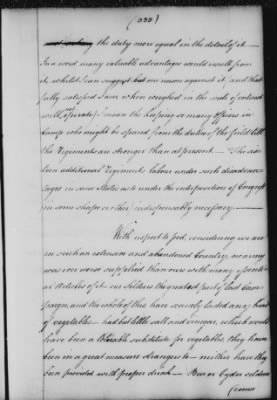 (333)
the duty more equal in the detail of it —
In a word many valuable advantages would result from
it, whilst I can suggest but one reason against it, (and that
fully satisfied I am when weighed in the scale of national
will, operate) I mean the keeping so many officers in
Camp who might be spared from the duties of the field till
the Regiments are stronger than at present — The six-
teen additional Regiments labour under such disadvan-
tages in some States as to render the interposition of Congress
in some shape or other indispensably necessary —
With respect to food, considering we are
in such an extensive and abundant Country, no army
was ever worse supplied than ours with many essenti-
al Articles of it — our Soldiers the greatest part of last Cam-
paign, and the whole of this have scarcely tasted any kind
of vegetables — had but little salt and vinegar, which would
have been a tolerable substitute for vegetables, they have
been in a great measure strangers to — neither have they
been provided with proper drink — Beer or Cyder seldom
comes